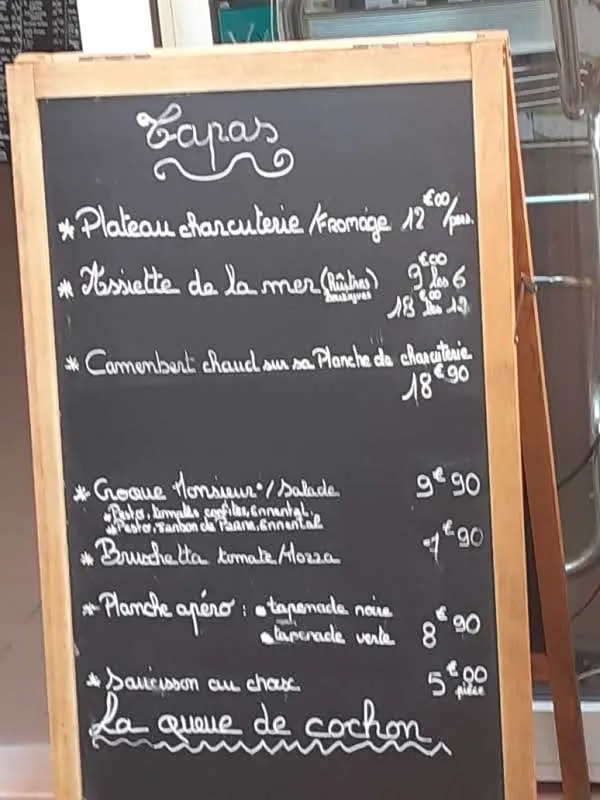 Tapas
* Plateau charcuterie / Fromage 12€00 / pers.
* Assiette de la mer (Huîtres) 9€00 les 6
18€00 les 12
* Camembert chaud sur sa Planche de charcuterie
18€90
* Croque Monsieur / Salade 9€90
* Pesto, tomates confites, Emmental.
* Pesto, Jambon de Parme, Emmental
* Bruschetta tomate / Mozza €90
* Planche apéro : • tapenade noire
• tapenade verte 8€90
* Saucisson au choix 5€00
pièce
La queue de cochon